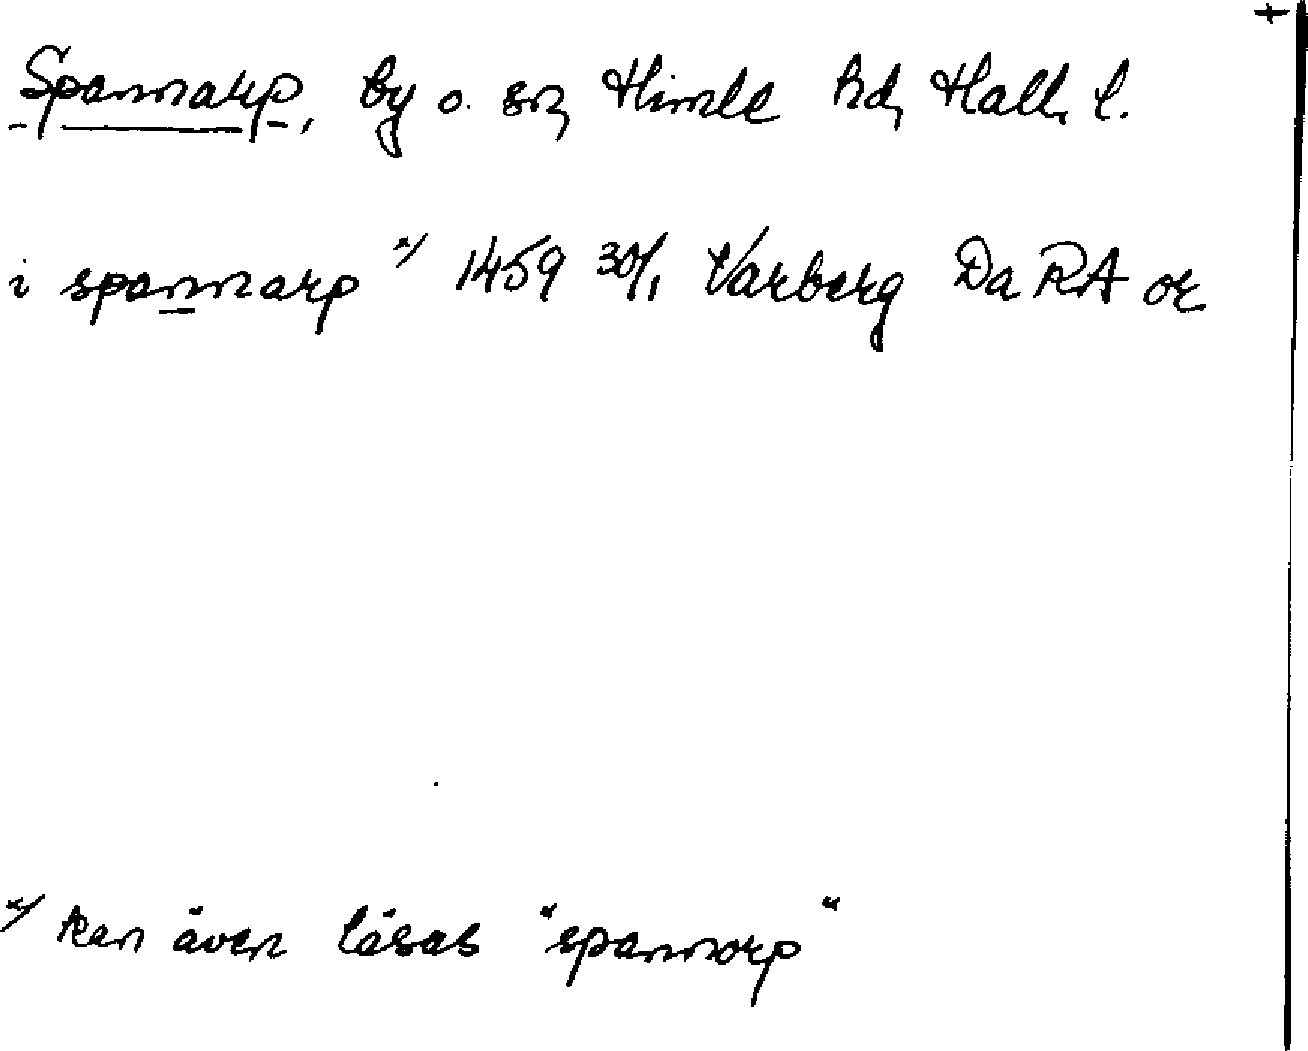 +
Spannarp, by o. sn, Himle hd, Hall. l.
i spannarp x) 1459 30/1 Varberg Da RA or
x) kan även läsas "spannorp"